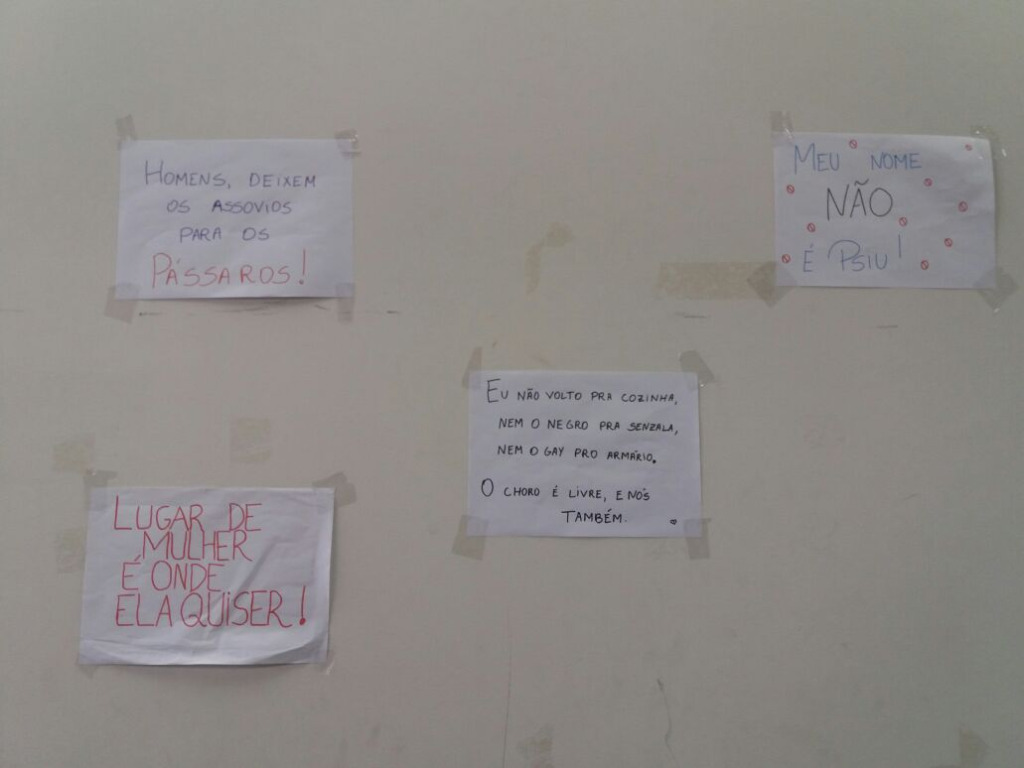 HOMENS, DEIXEM
OS ASSOVIOS
PARA OS
PÁSSAROS!
MEU NOME
NÃO
É PSIU!
EU NÃO VOLTO PRA COZINHA,
NEM O NEGRO PRA SENZALA,
NEM O GAY PRO ARMÁRIO.
O CHORO É LIVRE, E NÓS
TAMBÉM.
LUGAR DE
MULHER
É ONDE
ELA QUISER!